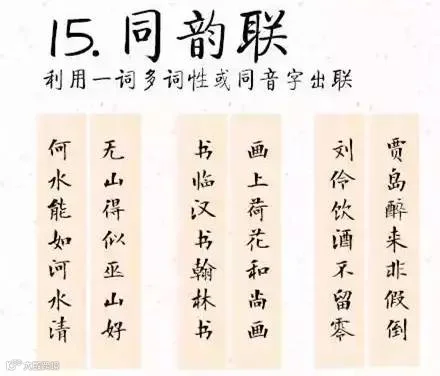 15. 同韵联
利用一词多词性或同音字出联
贾岛醉来非假倒
刘伶饮酒不留零
画上荷花和尚画
书临汉书翰林书
无山得似巫山好
何水能如河水清